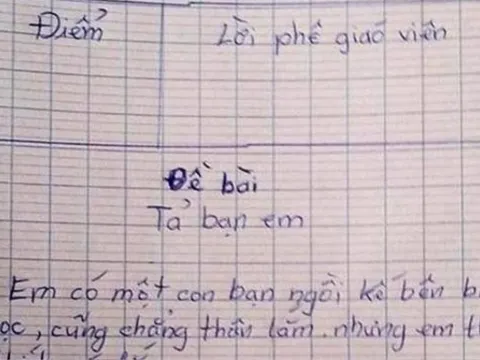 Điểm
Lời phê giáo viên
Đề bài
Tả bạn em
Em có một con bạn ngồi kế bên b
ọc, cũng chẳng thân lắm. nhưng em t